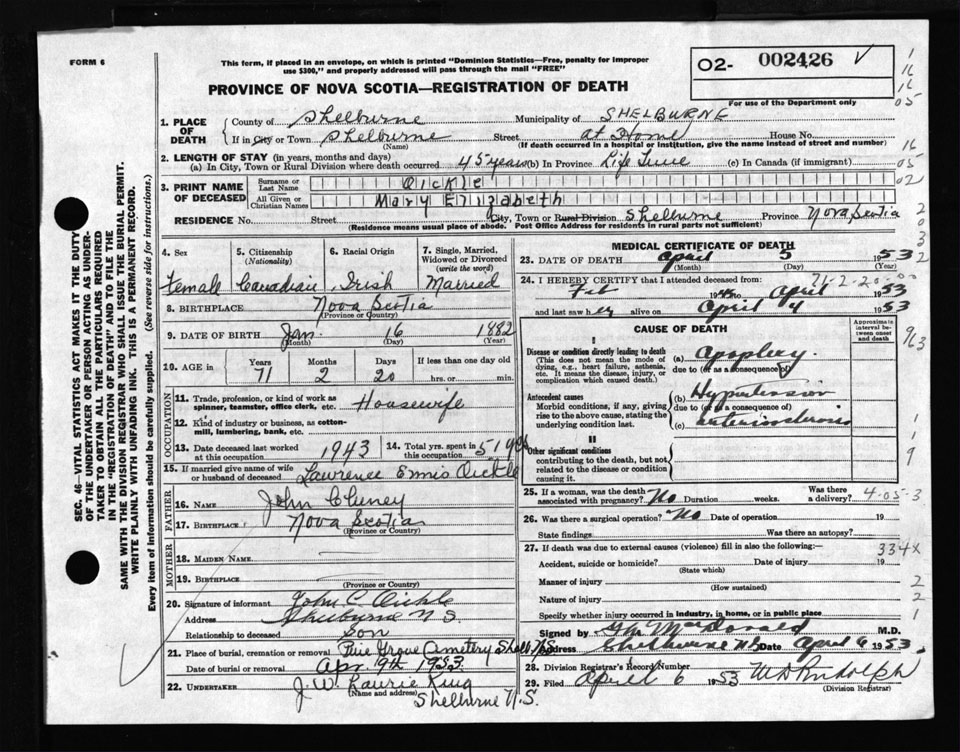 FORM 6
This form, if placed in an envelope, on which is printed "Dominion Statistics—Free, penalty for improper
use $300," and properly addressed will pass through the mail "FREE"
02- 002426
PROVINCE OF NOVA SCOTIA—REGISTRATION OF DEATH
For use of the Department only
1. PLACE OF DEATH
County of Shelburne Municipality of SHELBURNE
If in City or Town Shelburne Street at Home House No.
(Name) (If death occurred in a hospital or institution, give the name instead of street and number)
2. LENGTH OF STAY (in years, months and days)
(a) In City, Town or Rural Division where death occurred 45 years (b) In Province Life Time (c) In Canada (if immigrant)
3. PRINT NAME OF DECEASED
Surname or Last Name Oickle
All Given or Christian Names Mary Elizabeth
RESIDENCE No. Street City, Town or Rural Division Shelburne Province Nova Scotia
(Residence means usual place of abode. Post Office Address for residents in rural parts not sufficient)
4. Sex
Female
5. Citizenship (Nationality)
Canadian
6. Racial Origin
Irish
7. Single, Married, Widowed or Divorced (write the word)
Married
8. BIRTHPLACE Nova Scotia
(Province or Country)
9. DATE OF BIRTH Jan 16 1882
(Month) (Day) (Year)
10. AGE in Years Months Days If less than one day old
71 2 20 hrs. or min.
OCCUPATION
11. Trade, profession, or kind of work as
spinner, teamster, office clerk, etc. Housewife
12. Kind of industry or business, as cotton-
mill, lumbering, bank, etc.
13. Date deceased last worked at this occupation 1943
14. Total yrs. spent in this occupation 51 yrs
15. If married give name of wife
or husband of deceased Lawrence Ennis Oickle
FATHER
16. NAME John Cheney
17. BIRTHPLACE Nova Scotia
(Province or Country)
MOTHER
18. MAIDEN NAME
19. BIRTHPLACE
(Province or Country)
20. Signature of informant John C Oickle
Address Shelburne N S
Relationship to deceased Son
21. Place of burial, cremation or removal Pine Grove Cemetery
Date of burial or removal Apr. 1953
22. UNDERTAKER J. W. Laurie King
(Name and address) Shelburne N.S.
MEDICAL CERTIFICATE OF DEATH
23. DATE OF DEATH April 5 1953
(Month) (Day) (Year)
24. I HEREBY CERTIFY that I attended deceased from: 71-2-20
Feb 19 to April 1953
and last saw her alive on April 4 1953
CAUSE OF DEATH
Approximate interval between onset and death
I
Disease or condition directly leading to death
(This does not mean the mode of
dying, e.g., heart failure, asthenia,
etc. It means the disease, injury, or
complication which caused death.)
(a) Apoplexy
due to (or as a consequence of)
Antecedent causes
Morbid conditions, if any, giving
rise to the above cause, stating the
underlying condition last.
(b) Hypertension
due to (or as a consequence of)
(c) arteriosclerosis
II
Other significant conditions
contributing to the death, but not
related to the disease or condition
causing it.
25. If a woman, was the death
associated with pregnancy? No Duration weeks. Was there a delivery? 4-05-3
26. Was there a surgical operation? No Date of operation 19
State findings Was there an autopsy?
27. If death was due to external causes (violence) fill in also the following:—
334X
Accident, suicide or homicide? Date of injury 19
(State which)
Manner of injury
(How sustained)
Nature of injury
Specify whether injury occurred in industry, in home, or in public place
Signed by MacDonald M.D.
Address Shelburne NS Date April 6 1953
28. Division Registrar's Record Number
29. Filed April 6 1953 W D Rudolph
(Division Registrar)
SEC. 46—VITAL STATISTICS ACT MAKES IT THE DUTY
OF THE UNDERTAKER OR PERSON ACTING AS UNDER-
TAKER TO OBTAIN ALL THE PARTICULARS REQUIRED
IN THE "REGISTRATION OF DEATH" AND TO FILE THE
SAME WITH THE DIVISION REGISTRAR WHO SHALL ISSUE THE BURIAL PERMIT.
WRITE PLAINLY WITH UNFADING INK. THIS IS A PERMANENT RECORD.
Every item of Information should be carefully supplied. (See reverse side for instructions.)
1
16
16
05
16
05
02
2
0
3
2
963
1
1
9
2
2
1